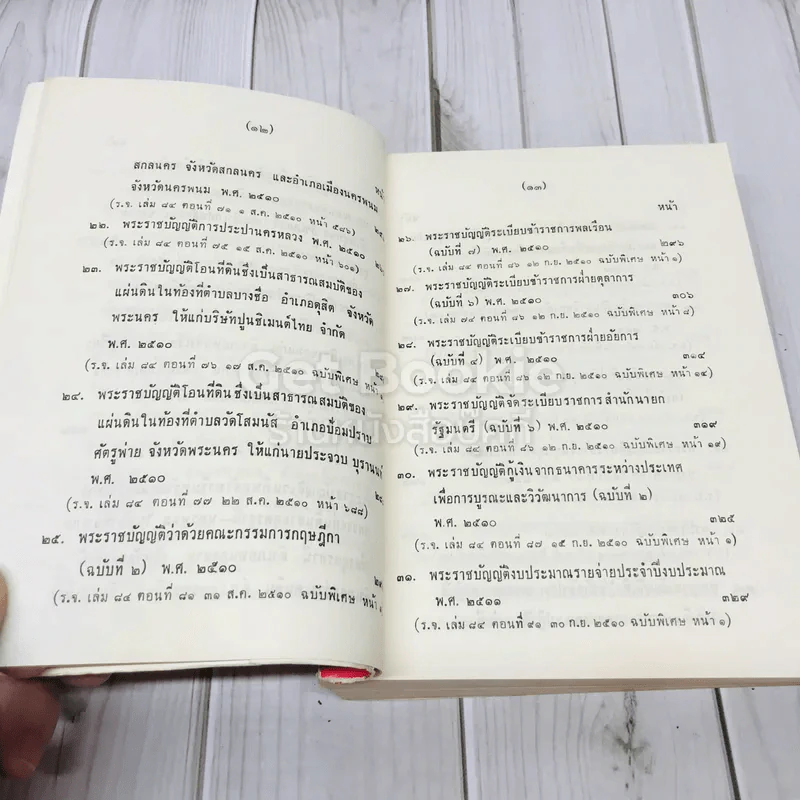 (๑๒)
สกลนคร จังหวัดสกลนคร และอำเภอเมืองนครพนม
จังหวัดนครพนม พ.ศ. ๒๕๑๐
(ร.จ. เล่ม ๘๔ ตอนที่ ๗๑ ๑ ส.ค. ๒๕๑๐ หน้า ๕๘๖)
๒๒. พระราชบัญญัติการประปานครหลวง พ.ศ. ๒๕๑๐
(ร.จ. เล่ม ๘๔ ตอนที่ ๗๕ ๑๕ ส.ค. ๒๕๑๐ หน้า ๖๐๑)
๒๓. พระราชบัญญัติโอนที่ดินซึ่งเป็นสาธารณสมบัติของ
แผ่นดินในท้องที่ตำบลบางซื่อ อำเภอดุสิต จังหวัด
พระนคร ให้แก่บริษัทปูนซิเมนต์ไทย จำกัด
พ.ศ. ๒๕๑๐
(ร.จ. เล่ม ๘๔ ตอนที่ ๗๖ ๑๗ ส.ค. ๒๕๑๐ ฉบับพิเศษ หน้า ๑
๒๔. พระราชบัญญัติโอนที่ดินซึ่งเป็นสาธารณสมบัติของ
แผ่นดินในท้องที่ตำบลวัดโสมนัส อำเภอป้อมปราบ
ศัตรูพ่าย จังหวัดพระนคร ให้แก่นายประจวบ บุรานนท์
พ.ศ. ๒๕๑๐
(ร.จ. เล่ม ๘๔ ตอนที่ ๗๗ ๒๒ ส.ค. ๒๕๑๐ หน้า ๖๘๘)
๒๕. พระราชบัญญัติว่าด้วยคณะกรรมการกฤษฎีกา
(ฉบับที่ ๒) พ.ศ. ๒๕๑๐
(ร.จ. เล่ม ๘๔ ตอนที่ ๘๑ ๓๑ ส.ค. ๒๕๑๐ ฉบับพิเศษ หน้า ๑
(๑๓)
หน้า
๒๖. พระราชบัญญัติระเบียบข้าราชการพลเรือน
(ฉบับที่ ๗) พ.ศ. ๒๕๑๐ ๒๙๖
(ร.จ. เล่ม ๘๔ ตอนที่ ๘๖ ๑๒ ก.ย. ๒๕๑๐ ฉบับพิเศษ หน้า ๑)
๒๗. พระราชบัญญัติระเบียบข้าราชการฝ่ายตุลาการ
(ฉบับที่ ๖) พ.ศ. ๒๕๑๐ ๓๐๖
(ร.จ. เล่ม ๗๔ ตอนที่ ๘๖ ๑๒ ก.ย. ๒๕๑๐ ฉบับพิเศษ หน้า ๘)
๒๘. พระราชบัญญัติระเบียบข้าราชการฝ่ายอัยการ
(ฉบับที่ ๔) พ.ศ. ๒๕๑๐ ๓๑๔
(ร.จ. เล่ม ๘๔ ตอนที่ ๘๖ ๑๒ ก.ย. ๒๕๑๐ ฉบับพิเศษ หน้า ๑๔)
๒๙. พระราชบัญญัติจัดระเบียบราชการสำนักนายก
รัฐมนตรี (ฉบับที่ ๖) พ.ศ. ๒๕๑๐ ๓๑๙
(ร.จ. เล่ม ๘๔ ตอนที่ ๘๖ ๑๒ ก.ย. ๒๕๑๐ ฉบับพิเศษ หน้า ๑๙)
๓๐. พระราชบัญญัติกู้เงินจากธนาคารระหว่างประเทศ
เพื่อการบูรณะและวิวัฒนาการ (ฉบับที่ ๒)
พ.ศ. ๒๕๑๐ ๓๒๕
(ร.จ. เล่ม ๘๔ ตอนที่ ๘๗ ๑๕ ก.ย. ๒๕๑๐ ฉบับพิเศษ หน้า ๑)
๓๑. พระราชบัญญัติงบประมาณรายจ่ายประจำปีงบประมาณ
พ.ศ. ๒๕๑๑ ๓๒๙
(ร.จ. เล่ม ๘๔ ตอนที่ ๙๑ ๓๐ ก.ย. ๒๕๑๐ ฉบับพิเศษ หน้า ๑)